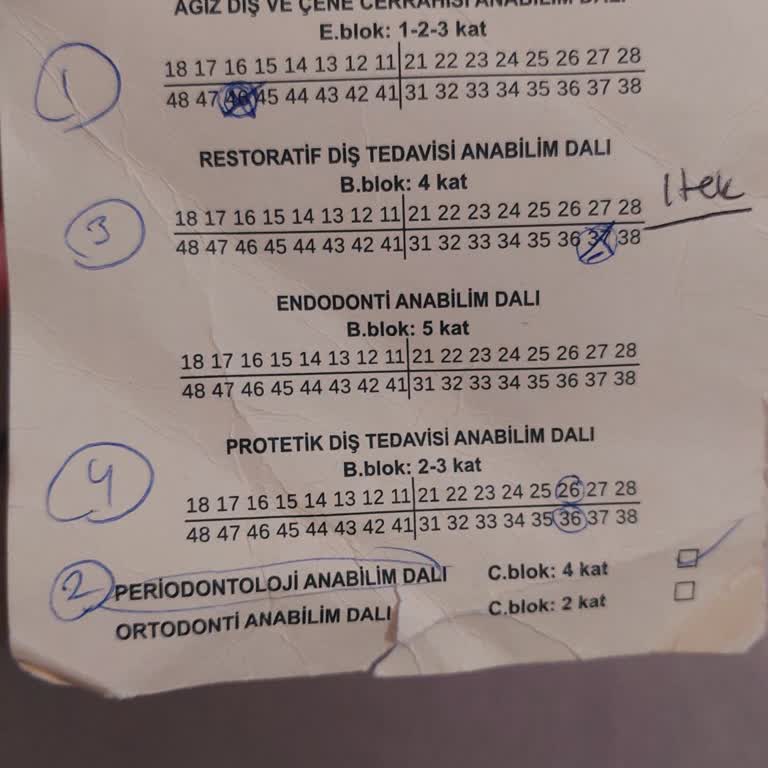 AĞIZ DİŞ VE ÇENE CERRAHİSİ ANABİLİM DALI
E.blok: 1-2-3 kat
1
18 17 16 15 14 13 12 11 21 22 23 24 25 26 27 28
48 47 46 45 44 43 42 41 31 32 33 34 35 36 37 38
RESTORATİF DİŞ TEDAVİSİ ANABİLİM DALI
B.blok: 4 kat
1 tek
3
18 17 16 15 14 13 12 11 21 22 23 24 25 26 27 28
48 47 46 45 44 43 42 41 31 32 33 34 35 36 37 38
ENDODONTİ ANABİLİM DALI
B.blok: 5 kat
18 17 16 15 14 13 12 11 21 22 23 24 25 26 27 28
48 47 46 45 44 43 42 41 31 32 33 34 35 36 37 38
PROTETİK DİŞ TEDAVİSİ ANABİLİM DALI
B.blok: 2-3 kat
4
18 17 16 15 14 13 12 11 21 22 23 24 25 26 27 28
48 47 46 45 44 43 42 41 31 32 33 34 35 36 37 38
2 PERİODONTOLOJİ ANABİLİM DALI C.blok: 4 kat
ORTODONTİ ANABİLİM DALI C.blok: 2 kat